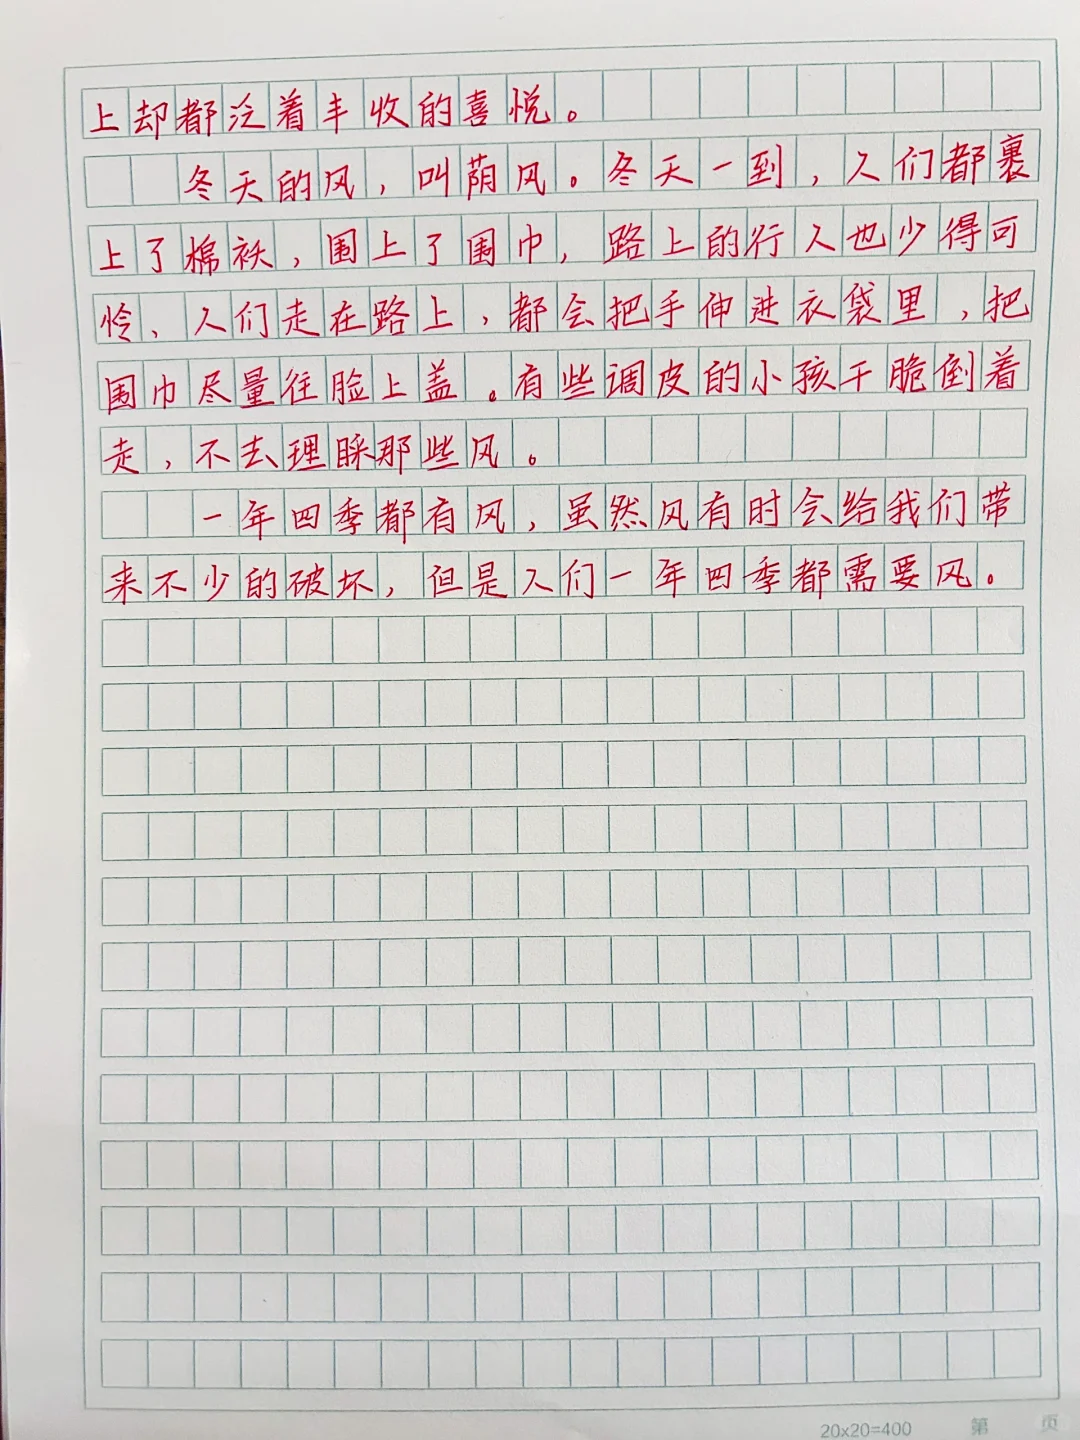 上却都泛着丰收的喜悦。
冬天的风,叫荫风。冬天一到,人们都裹
上了棉袄,围上了围巾,路上的行人也少得可
怜、人们走在路上,都会把手伸进衣袋里,把
围巾尽量往脸上盖。有些调皮的小孩干脆倒着
走,不去理睬那些风。
一年四季都有风,虽然风有时会给我们带
来不少的破坏,但是人们一年四季都需要风。
20x20=400 第 页